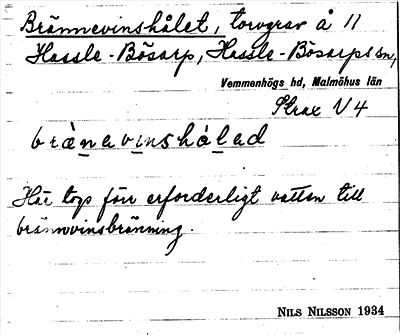 Brännevinshålet, torvgrav å 11
Hassle-Bösarp, Hassle-Bösarps sn,
Vemmenhögs hd, Malmöhus län
Strax V 4
brànavinshålad
Här togs förr erforderligt vatten till
brännvinsbränning.
NILS NILSSON 1934